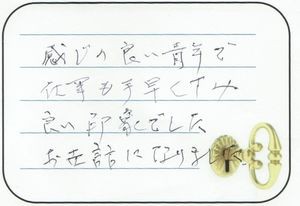 感じの良い青年で
仕事も手早くすみ
良い印象でした
お世話になりました